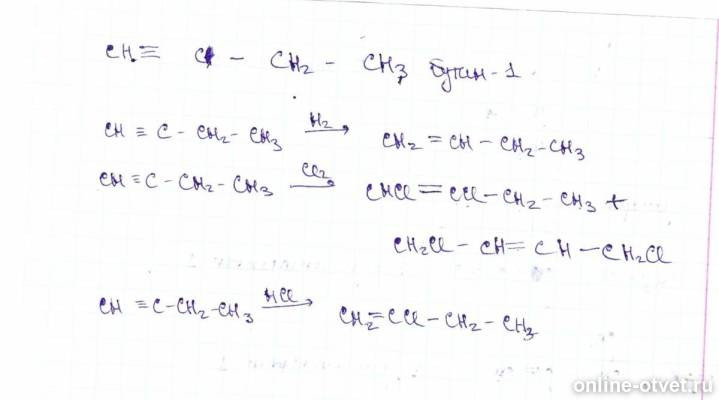 CH ≡ C - CH₂ - CH₃ бутин-1
CH ≡ C - CH₂ - CH₃ H₂→ CH₂ = CH - CH₂ - CH₃
CH ≡ C - CH₂ - CH₃ Cl₂→ CHCl = CCl - CH₂ - CH₃ +
CH₂Cl - CH = CH - CH₂Cl
CH ≡ C - CH₂ - CH₃ HCl→ CH₂ = CCl - CH₂ - CH₃
online-otvet.ru